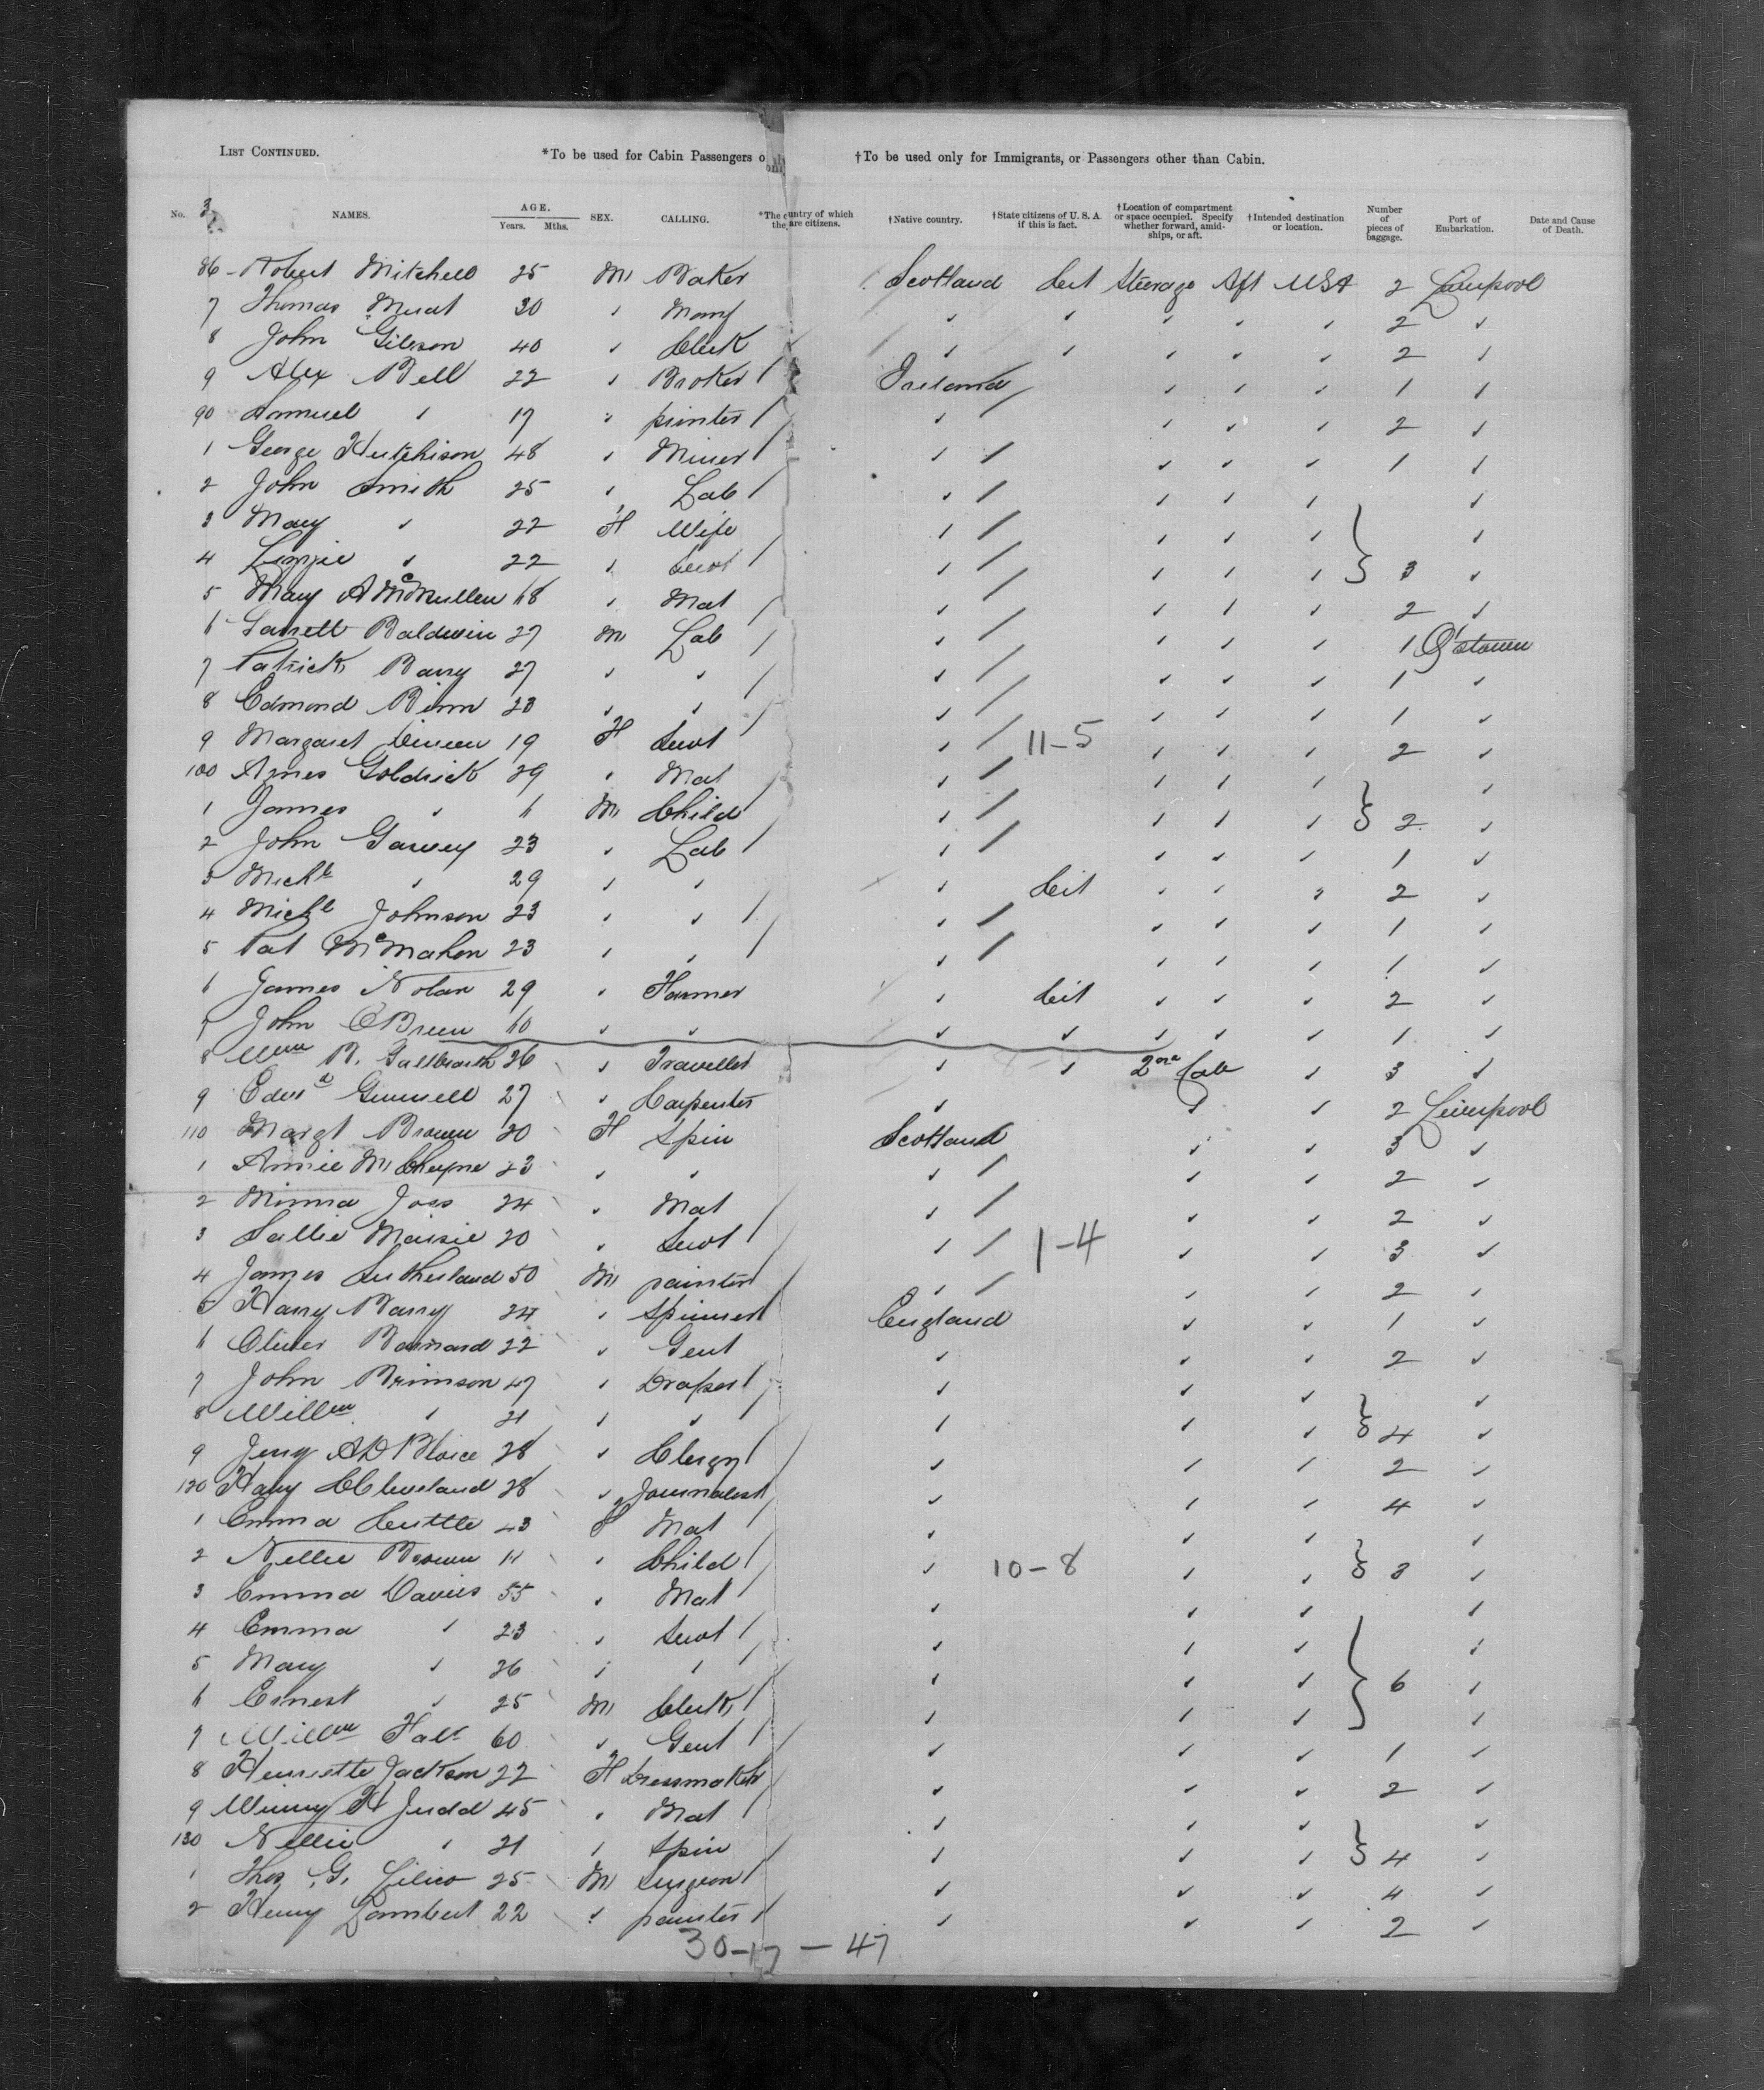 LIST CONTINUED. *To be used for Cabin Passengers only †To be used only for Immigrants, or Passengers other than Cabin.
No. 3 NAMES. AGE. Years. Mths. SEX. CALLING. *The country of which they are citizens. †Native country. †State citizens of U. S. A. if this is fact. †Location of compartment or space occupied. Specify whether forward, amidships, or aft. †Intended destination or location. Number of pieces of baggage. Port of Embarkation. Date and Cause of Death.
86 Robert Mitchell 25 M Baker Scotland Cit Steerage Aft USA 2 Liverpool
7 Thomas 30 2
8 John Gibson 40 Clerk 2
9 Alex Bell 22 Broker Ireland 1
90 Samuel 17 printer 2
1 George Hutchison 48 Miner 1
2 John Smith 25 Lab
3 Mary 22 F Wife
4 Lizzie 22 Servt 3
5 Mary A McMullen 68 Mat 2
6 Garrett Baldwin 27 M Lab 1 Q'stown
7 Patrick Barry 27 1
8 Edmond 23 1
9 Margaret 19 F Servt 11-5 2
100 Agnes Goldrick 29 Mat
1 James 6 M Child 2
2 John Garvey 23 Lab 1
3 Michl 29 Cit 2
4 Michl Johnson 23 1
5 Pat McMahon 23 1
6 James Nolan 29 Farmer Cit 2
7 John OBrien 60 1
8 Wm B. Galbraith 26 Traveller 2nd Cab 3
9 Edwd Gunnell 27 Carpenter 2 Liverpool
110 Margt Brown 20 F Spin Scotland 3
1 Annie M Cheyne 23 2
2 Minna Joss 24 Mat 2
3 Sallie 20 Servt 1-4 3
4 James Sutherland 50 M painter 2
5 Harry Barry 24 Spinner England 1
6 Oliver Barnard 22 Gent 2
7 John Brimson 47 Draper
8 Willm 21 4
9 Jerry AD 28 Clergy 2
120 Harry CCleveland 28 Journalist 4
1 Emma 43 F Mat
2 Nellie Brown 11 Child 10-8 3
3 Emma Davies 55 Mat
4 Emma 23 Servt
5 Mary 26 6
6 Ernest 25 M Clerk
7 Willm 60 Gent 1
8 Henriette Jackson 22 F Dressmaker 2
9 Winny H Judd 45 Mat
130 Nellie 21 Spin 4
1 Thos G. 25 M Surgeon 4
2 Henry Lambert 22 painter 2
30-17-47